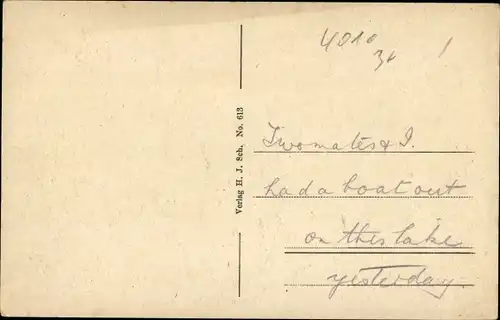 4010
Two mates & I.
had a boat out
on this lake
yesterday.
Verlag H. J. Sch. No. 613